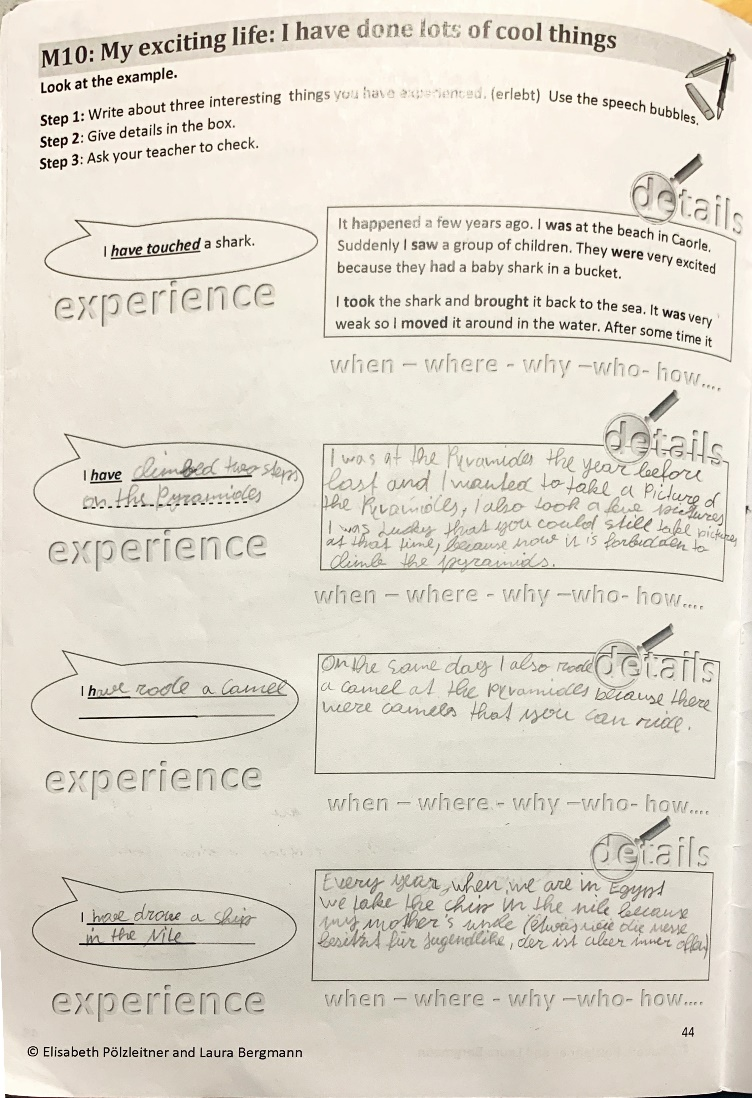 M10: My exciting life: I have done lots of cool things
Look at the example.
Step 1: Write about three interesting things you have experienced. (erlebt) Use the speech bubbles.
Step 2: Give details in the box.
Step 3: Ask your teacher to check.
details
I have touched a shark.
experience
It happened a few years ago. I was at the beach in Caorle.
Suddenly I saw a group of children. They were very excited
because they had a baby shark in a bucket.
I took the shark and brought it back to the sea. It was very
weak so I moved it around in the water. After some time it
when – where - why –who- how....
details
I have climbed two steps
on the Pyramides
experience
I was at the Pyramides the year before
last and I wanted to take a Picture of
the Pyramides, I also took a few pictures
I was Lucky that you could still take pictures
at that time, because now it is forbidden to
climbe the pyramids.
when – where - why –who- how....
details
I have rode a camel
experience
On the same day I also rode
a camel at the pyramides because there
were camels that you can ride.
when – where - why –who- how....
details
I have drove a ship
in the Nile
experience
Every year, when we are in Egypt
we take the ship in the nile because
my mother's uncle (etwas wie die messe
besitzt für jugendlike, der ist aber immer offen)
when – where - why –who- how....
44
© Elisabeth Pölzleitner and Laura Bergmann